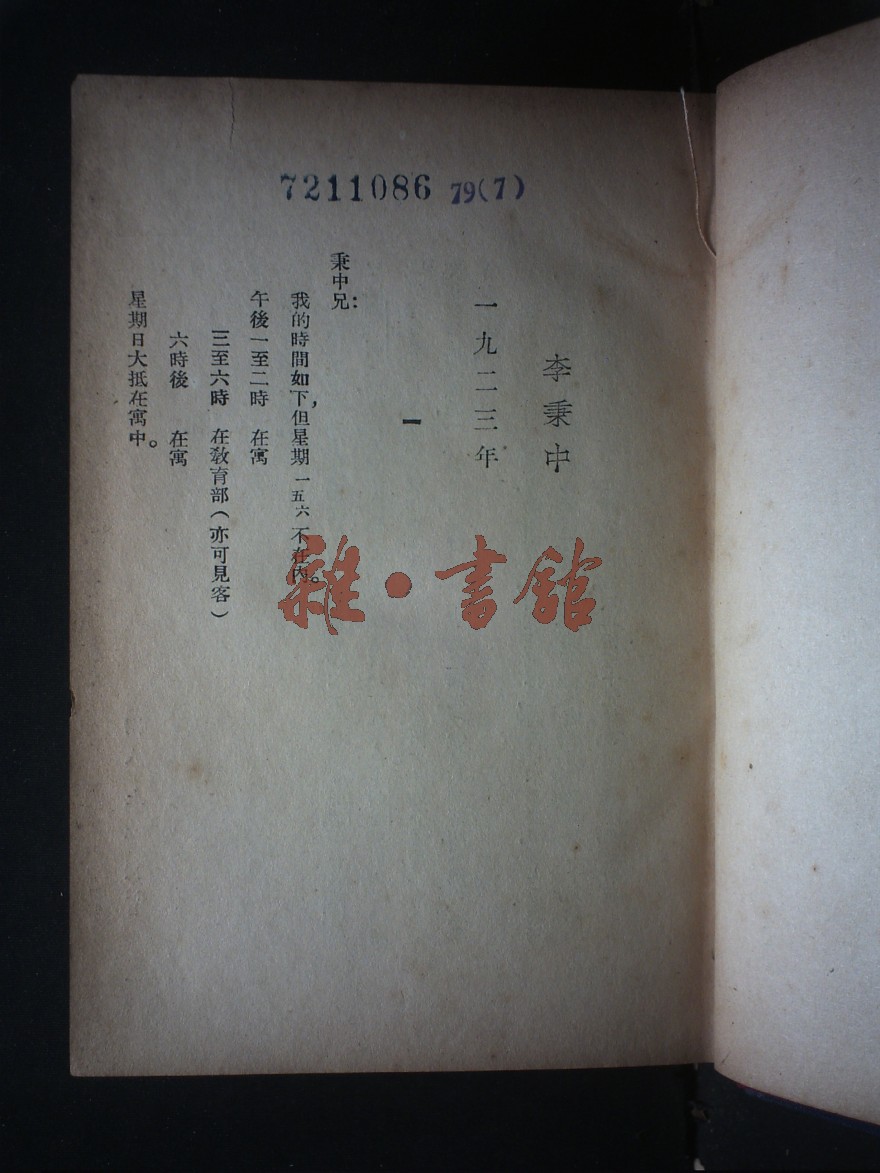 7211086 79(7)
李秉中
一九二三年
一
秉中兄：
我的時間如下，但星期一五六不在內。
午後一至二時　在寓
三至六時　在教育部（亦可見客）
六時後　在寓
星期日大抵在寓中。
雜·書館